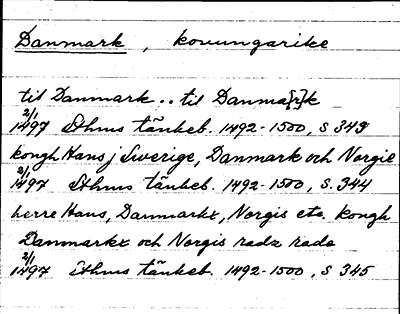 Danmark, konungarike
til Danmark .. til Danma[r]k
2/1
1497 Sthms tänkeb. 1492-1500, s 343
kongh Hans j Swerige, Danmark och Norgie
2/1
1497 Sthms tänkeb. 1492-1500, s. 344
herre Hans, Danmarkz, Norgis etc. kongh
Danmarkz och Norgis radz rade
2/1
1497 Sthms tänkeb. 1492-1500, s 345